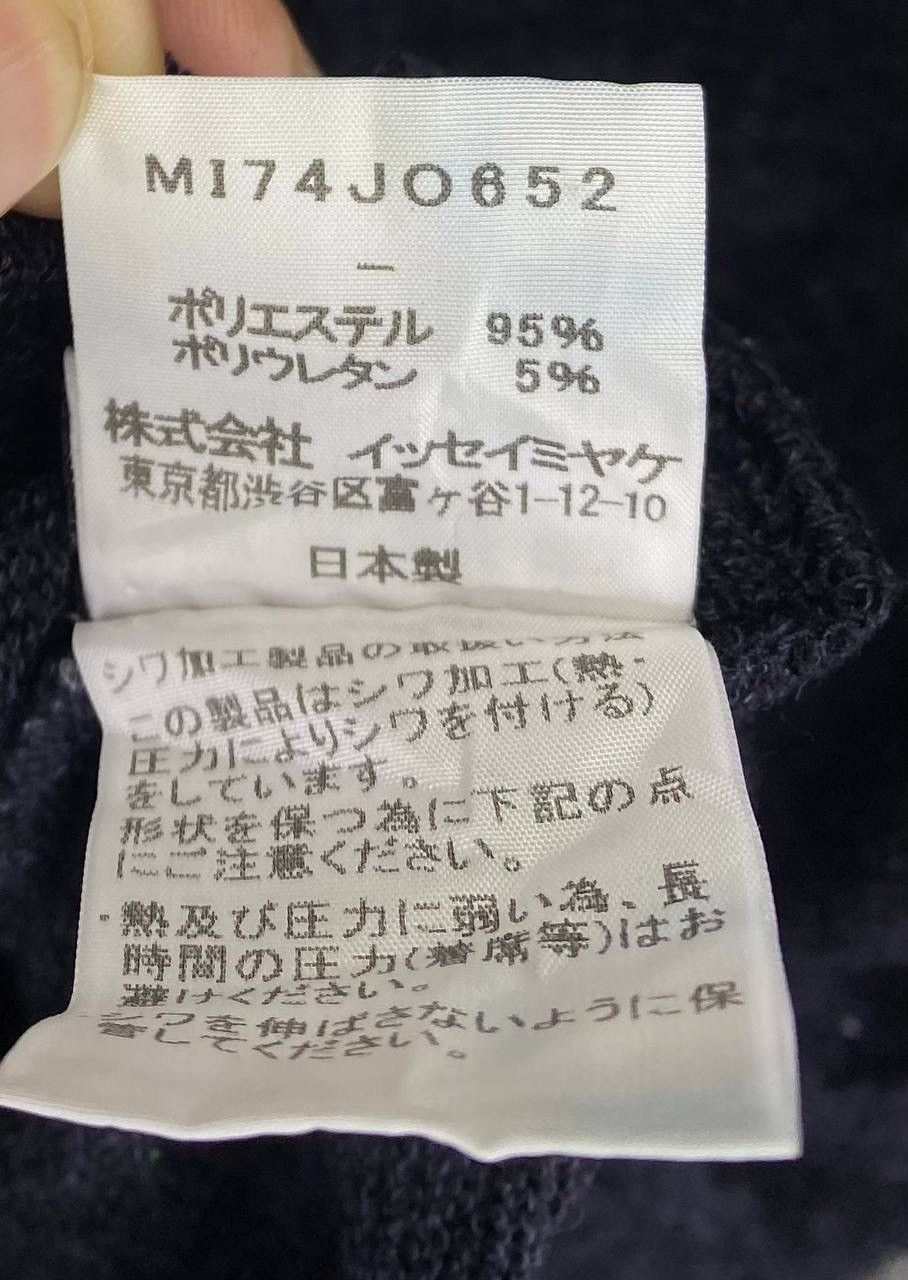 MI74JO652
—
ポリエステル 95%
ポリウレタン 5%
株式会社 イッセイミヤケ
東京都渋谷区富ヶ谷1-12-10
日本製
シワ加工製品の取扱い方法
この製品はシワ加工(熱・
圧力によりシワを付ける)
をしています。
形状を保つ為に下記の点
にご注意ください。
・熱及び圧力に弱い為、長
時間の圧力(着席等)はお
避けください。
シワを伸ばさないように保
管してください。